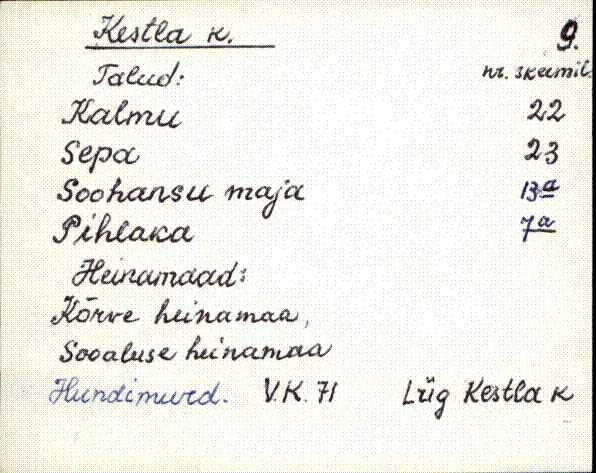 Kestla k. 9.
Talud: nr. skeemil.
Kalmu 22
Sepa 23
Soohansu maja 13a
Pihlaka 7a
Heinamaad:
Kõrve heinamaa,
Sooaluse heinamaa
Hundimurd. V.K. 71 Lüg Kestla k